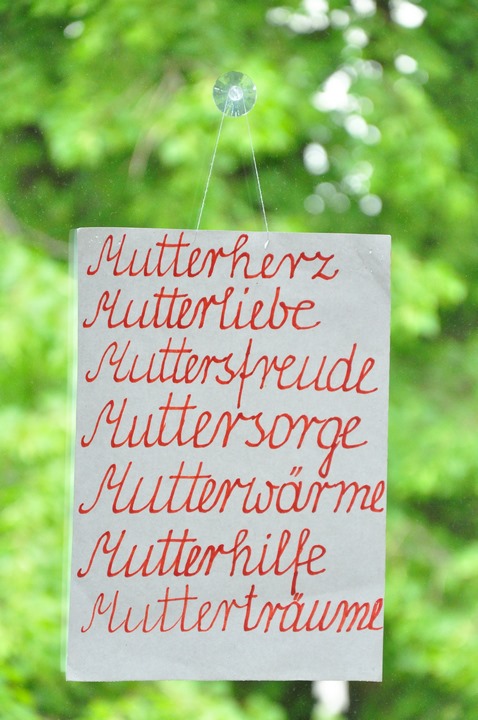 Mutterherz
Mutterliebe
Muttersfreude
Muttersorge
Mutterwärme
Mutterhilfe
Mutterträume